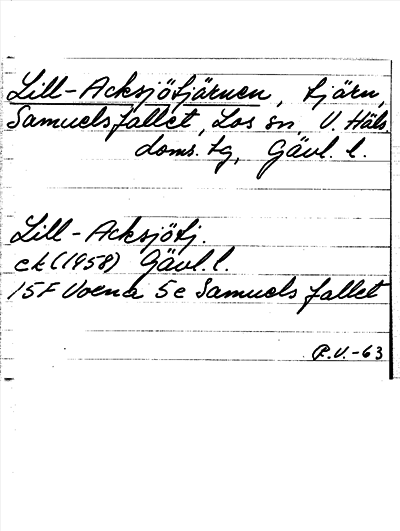 Lill-Acksjötjärnen, tjärn,
Samuelsfallet, Los sn, V. Häls.
doms. tg, Gävl. l.
Lill-Acksjötj.
ek (1958) Gävl. l.
15F Voxna 5e Samuelsfallet
R.V.-63